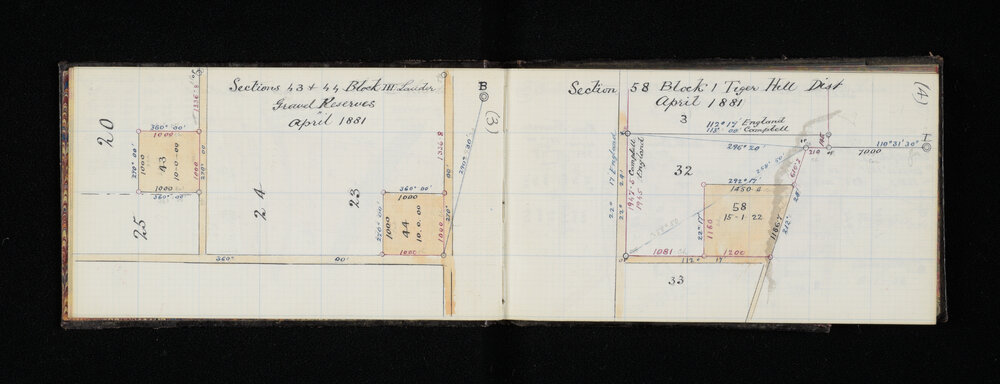 Sections 43 + 44 Block III Lauder
Gravel Reserves
April 1881
B
(3)
20
25
24
23
360° 00'
1000
270° 00'
1000
43
10.0.00
1000
1000
360° 00'
1336.8
360° 00'
1000
270° 00'
1000
44
10.0.00
1000
1000
270°
00'
1336.8
290° 20'
360°
00'
Section 58 Block 1 Tiger Hill Dist
April 1881
(4)
3
112° 17' England
112° 00' Campbell
296° 20'
110° 31' 30"
7000
I
210
32
22° 17' England
22° 21'
1947.5 Campbell
1945 England
292° 17'
1450.6
58
15.1.22
22° 17'
1160
1081
1200
112° 17'
212°
33